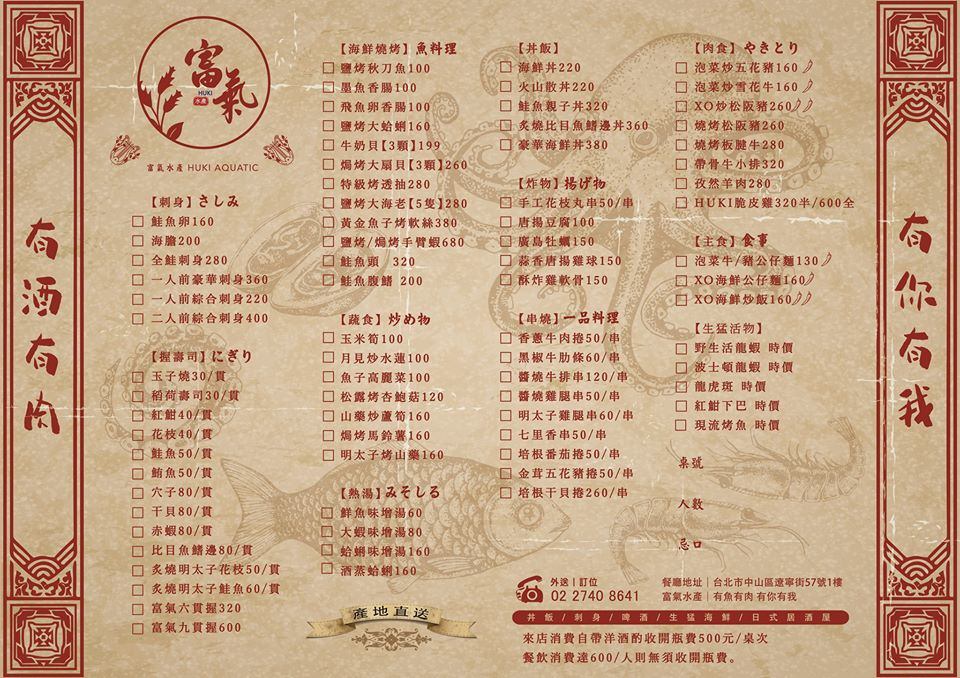 富氣
HUKI
水產
富氣水產 HUKI AQUATIC
有酒有肉
【刺身】さしみ
鮭魚卵160
海膽200
全鮭刺身280
一人前豪華刺身360
一人前綜合刺身220
二人前綜合刺身400
【握壽司】にぎり
玉子燒30/貫
稻荷壽司30/貫
紅魽40/貫
花枝40/貫
鮭魚50/貫
鮪魚50/貫
穴子80/貫
干貝80/貫
赤蝦80/貫
比目魚鰭邊80/貫
炙燒明太子花枝50/貫
炙燒明太子鮭魚60/貫
富氣六貫握320
富氣九貫握600
【海鮮燒烤】魚料理
鹽烤秋刀魚100
墨魚香腸100
飛魚卵香腸100
鹽烤大蛤蜊160
牛奶貝【3顆】199
焗烤大扇貝【3顆】260
特級烤透抽280
鹽烤大海老【5隻】280
黃金魚子烤軟絲380
鹽烤/焗烤手臂蝦680
鮭魚頭 320
鮭魚腹鰭 200
【蔬食】炒め物
玉米筍100
月見炒水蓮100
魚子高麗菜100
松露烤杏鮑菇120
山藥炒蘆筍160
焗烤馬鈴薯160
明太子烤山藥160
【熱湯】みそしる
鮮魚味增湯60
大蝦味增湯80
蛤蜊味增湯160
酒蒸蛤蜊160
產地直送
【丼飯】
海鮮丼220
火山散丼220
鮭魚親子丼320
炙燒比目魚鰭邊丼360
豪華海鮮丼380
【炸物】揚げ物
手工花枝丸串50/串
唐揚豆腐100
廣島牡蠣150
蒜香唐揚雞球150
酥炸雞軟骨150
【串燒】一品料理
香蔥牛肉捲50/串
黑椒牛肋條60/串
醬燒牛排串120/串
醬燒雞腿串50/串
明太子雞腿串60/串
七里香串50/串
培根番茄捲50/串
金茸五花豬捲50/串
培根干貝捲260/串
【肉食】やきとり
泡菜炒五花豬160
泡菜炒雪花牛160
XO炒松阪豬260
燒烤松阪豬260
燒烤板腱牛280
帶骨牛小排320
孜然羊肉280
HUKI脆皮雞320半/600全
【主食】食事
泡菜牛/豬公仔麵130
XO海鮮公仔麵160
XO海鮮炒飯160
【生猛活物】
野生活龍蝦 時價
波士頓龍蝦 時價
龍虎斑 時價
紅魽下巴 時價
現流烤魚 時價
桌號
人數
忌口
外送|訂位
02 2740 8641
餐廳地址|台北市中山區遼寧街57號1樓
富氣水產|有魚有肉 有你有我
丼飯/刺身/啤酒/生猛海鮮/日式居酒屋
來店消費自帶洋酒酌收開瓶費500元/桌次
餐飲消費達600/人則無須收開瓶費。
有你有我